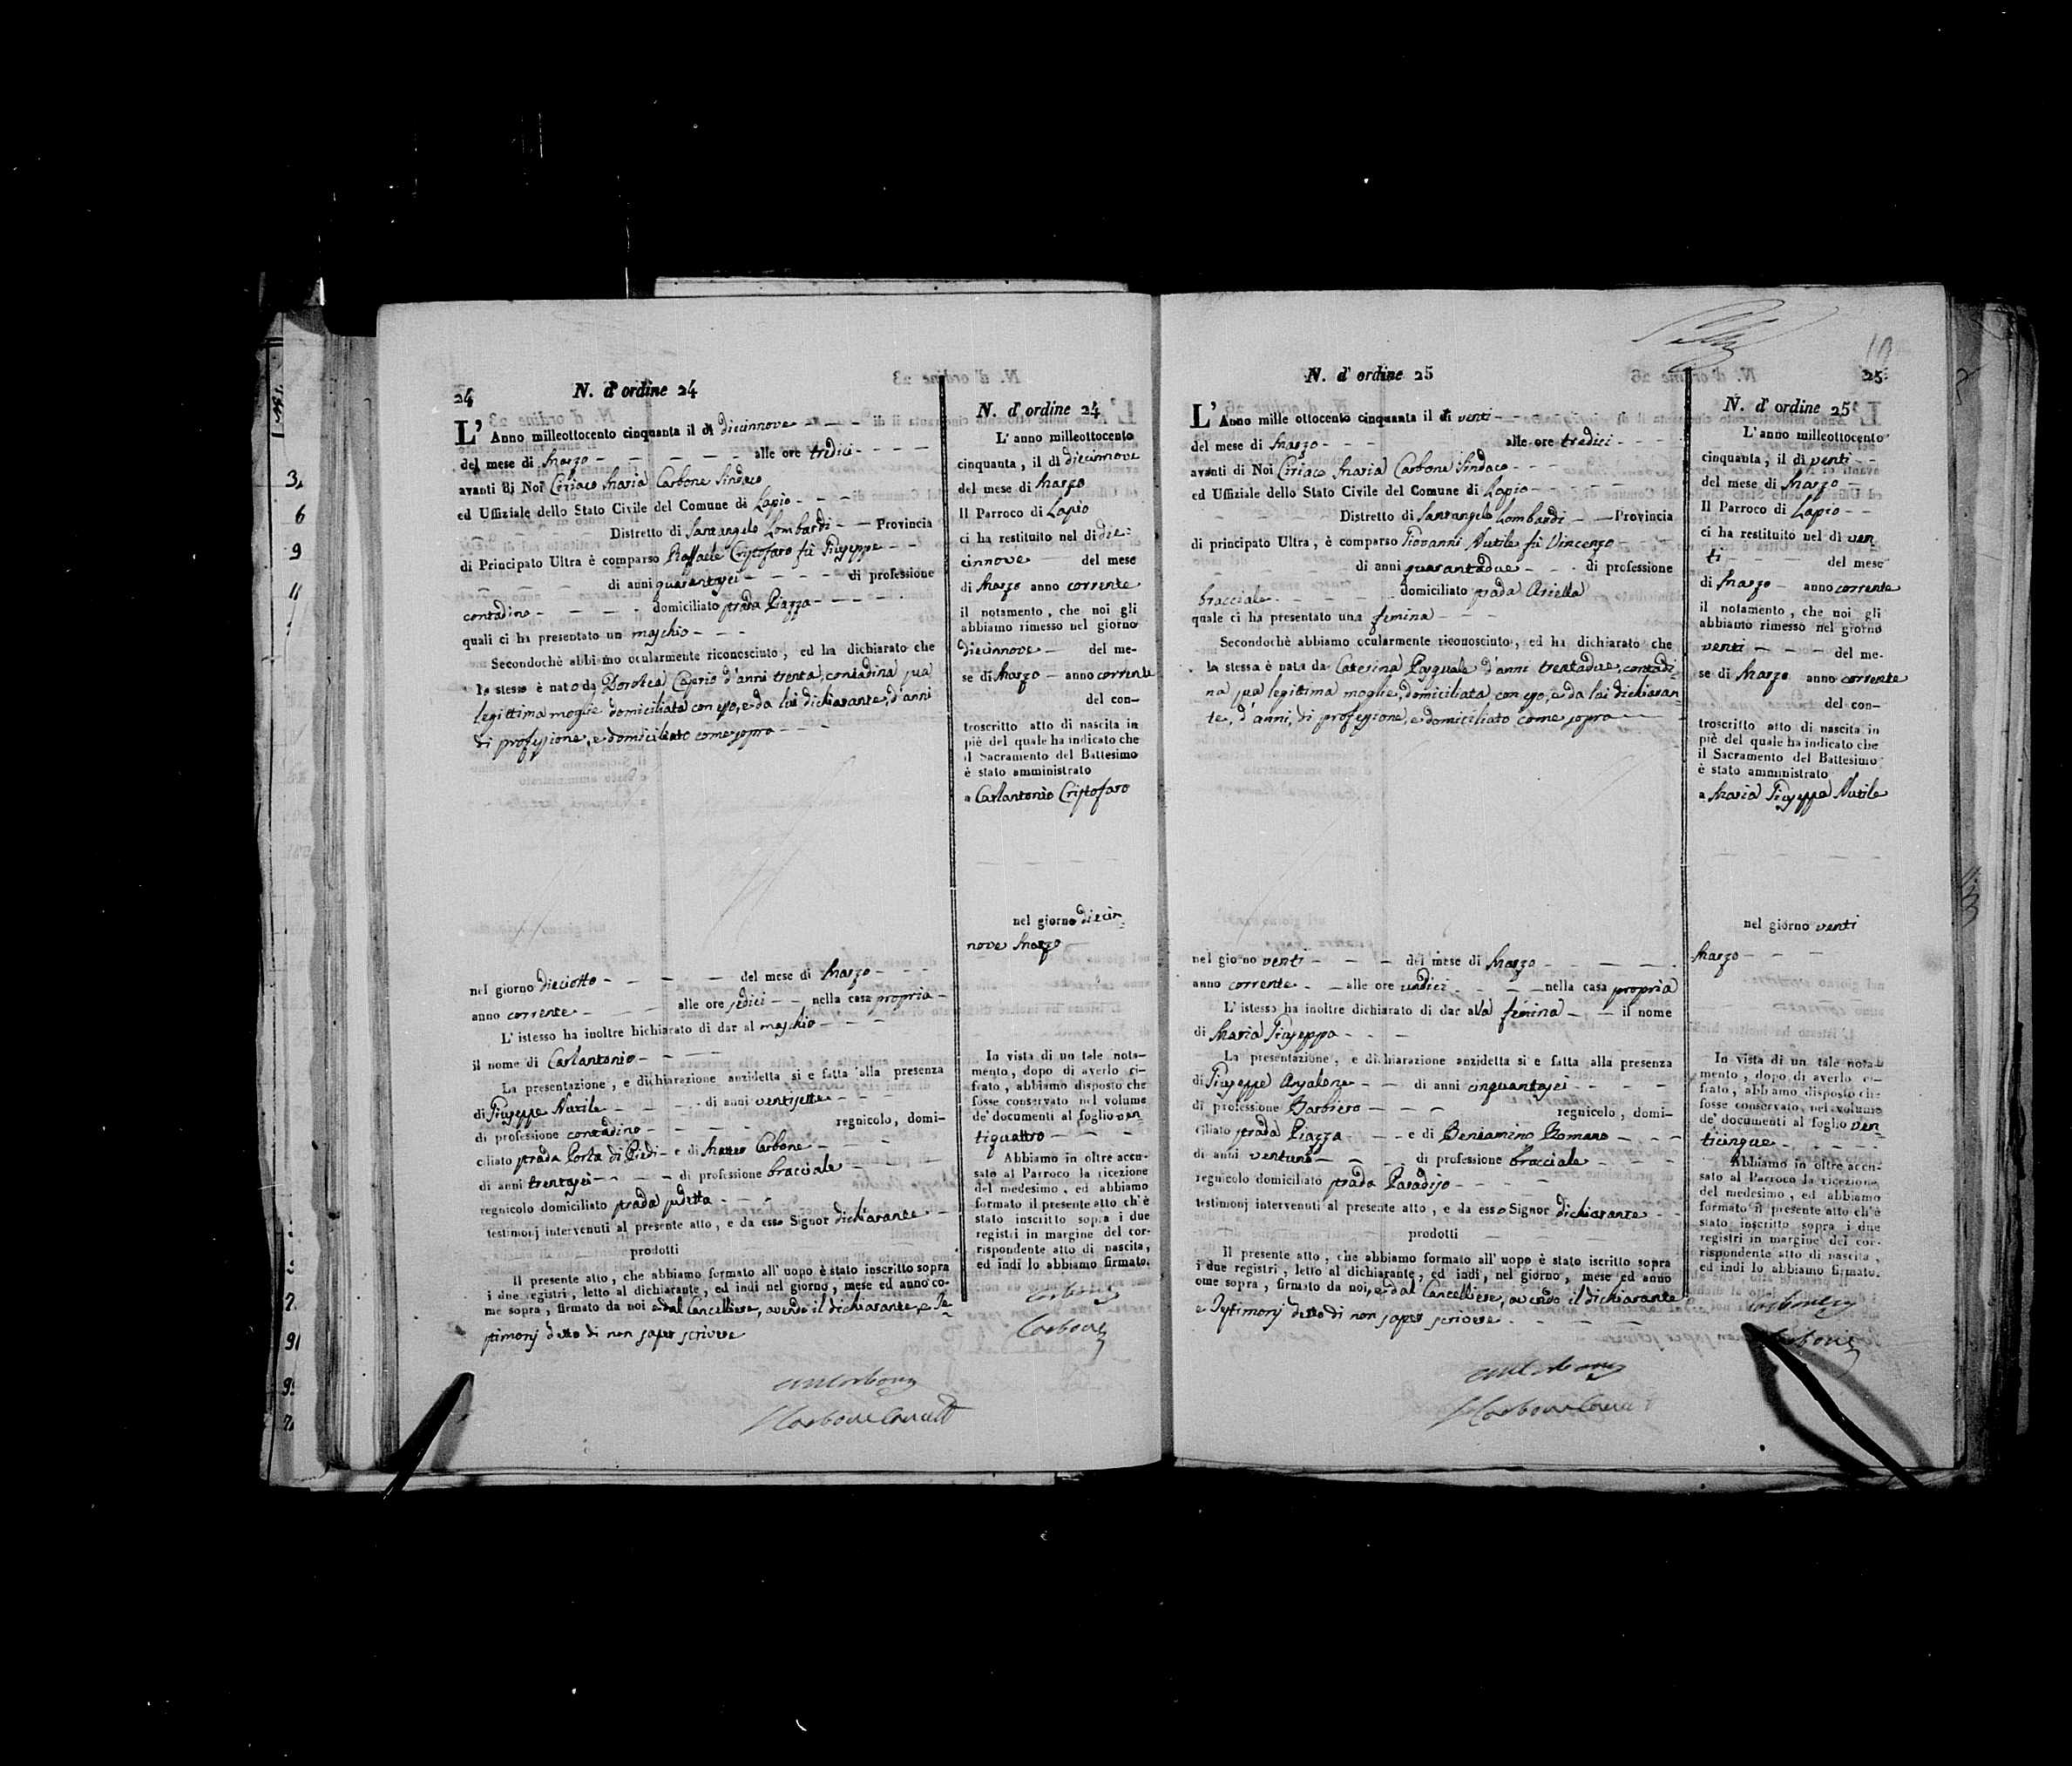 24
N. d' ordine 24
L' Anno milleottocento cinquanta il di diecinnove
del mese di Marzo alle ore tredici
avanti di Noi Ciriaco Maria Carbone Sindaco
ed Uffiziale dello Stato Civile del Comune di Lapio
Distretto di Santangelo Lombardi Provincia
di Principato Ultra è comparso Raffaele Cristofaro fù Giuseppe
di anni quarantasei di professione
contadino domiciliato strada Piazza
quali ci ha presentato un maschio
Secondochè abbiamo ocularmente riconosciuto, ed ha dichiarato che
lo stesso è nato da Dorotea Caserio d'anni trenta, contadina sua
legittima moglie domiciliata con esso, e da lui dichiarante, d'anni
di professione, e domiciliato come sopra
nel giorno dieciotto del mese di Marzo
anno corrente alle ore sedici nella casa propria
L' istesso ha inoltre hichiarato di dar al maschio
il nome di Carlantonio
La presentazione, e dichiarazione anzidetta si e fatta alla presenza
di Giuseppe Nutile di anni ventisette
di professione contadino regnicolo, domi-
ciliato strada Porta di Piedi e di Matteo Carbone
di anni trentasei di professione bracciale
regnicolo domiciliato strada sudetta
testimonj intervenuti al presente atto, e da esso Signor dichiarante
prodotti
Il presente atto, che abbiamo formato all' uopo è stato inscritto sopra
i due registri, letto al dichiarante, ed indi nel giorno, mese ed anno co-
me sopra, firmato da noi e dal Cancelliere, avendo il dichiarante, e Te-
stimonj detto di non saper scrivere
N. d' ordine 24
L' anno milleottocento
cinquanta, il di diecinnove
del mese di Marzo
Il Parroco di Lapio
ci ha restituito nel di die-
cinnove del mese
di Marzo anno corrente
il notamento, che noi gli
abbiamo rimesso nel giorno
diecinnove del me-
se di Marzo anno corrente
del con-
troscritto atto di nascita in
piè del quale ha indicato che
il Sacramento del Battesimo
è stato amministrato
a Carlantonio Cristofaro
nel giorno diecin-
nove Marzo
In vista di un tale nota-
mento, dopo di averlo ci-
frato, abbiamo disposto che
fosse conservato nel volume
de' documenti al foglio ven
tiquattro
Abbiamo in oltre accu-
sato al Parroco la ricezione
del medesimo, ed abbiamo
formato il presente atto ch' è
stato inscritto sopra i due
registri in margine del cor-
rispondente atto di nascita,
ed indi lo abbiamo firmato.
Carbone
N. d' ordine 25
25
L' Anno mille ottocento cinquanta il di venti
del mese di Marzo alle ore tredici
avanti di Noi Ciriaco Maria Carbone Sindaco
ed Uffiziale dello Stato Civile del Comune di Lapio
Distretto di Santangelo Lombardi Provincia
di principato Ultra, è comparso Giovanni Nutile fù Vincenzo
di anni quarantadue di professione
bracciale domiciliato strada Ariella
quale ci ha presentato una femina
Secondochè abbiamo ocularmente riconosciuto, ed ha dichiarato che
la stessa è nata da Caterina Pasquale d'anni trentadue, contadi-
na sua legittima moglie, domiciliata con esso, e da lui dichiaran
te, d'anni, di professione, e domiciliato come sopra
nel giorno venti del mese di Marzo
anno corrente alle ore undici nella casa propria
L' istesso ha inoltre dichiarato di dar alla femina il nome
di Maria Giuseppa
La presentazione, e dichiarazione anzidetta si e fatta alla presenza
di Giuseppe Anzalone di anni cinquantasei
di professione Barbiero regnicolo, domi-
ciliato strada Piazza e di Beniamino Romano
di anni ventuno di professione bracciale
regnicolo domiciliato strada Paradiso
testimonj intervenuti al presente atto, e da esso Signor dichiarante
prodotti
Il presente atto, che abbiamo formato all' uopo è stato iscritto sopra
i due registri, letto al dichiarante, ed indi, nel giorno, mese ed anno
ome sopra, firmato da noi, e dal Cancelliere, avendo il dichiarante
e Testimonj detto di non saper scrivere
N. d' ordine 25
L' anno milleottocento
cinquanta, il di venti
del mese di Marzo
Il Parroco di Lapio
ci ha restituito nel di ven
ti del mese
di Marzo anno corrente
il notamento, che noi gli
abbiamo rimesso nel giorno
venti del me-
se di Marzo anno corrente
del con-
troscritto atto di nascita in
piè del quale ha indicato che
il Sacramento del Battesimo
è stato amministrato
a Maria Giuseppa Nutile
nel giorno venti
Marzo
In vista di un tale nota-
mento, dopo di averlo ci-
frato, abbiamo disposto che
fosse conservato nel volume
de' documenti al foglio ven
ticinque
Abbiamo in oltre accu-
sato al Parroco la ricezione
del medesimo, ed abbiamo
formato il presente atto ch' è
stato inscritto sopra i due
registri in margine del cor-
rispondente atto di nascita,
ed indi lo abbiamo firmato.
Carbone